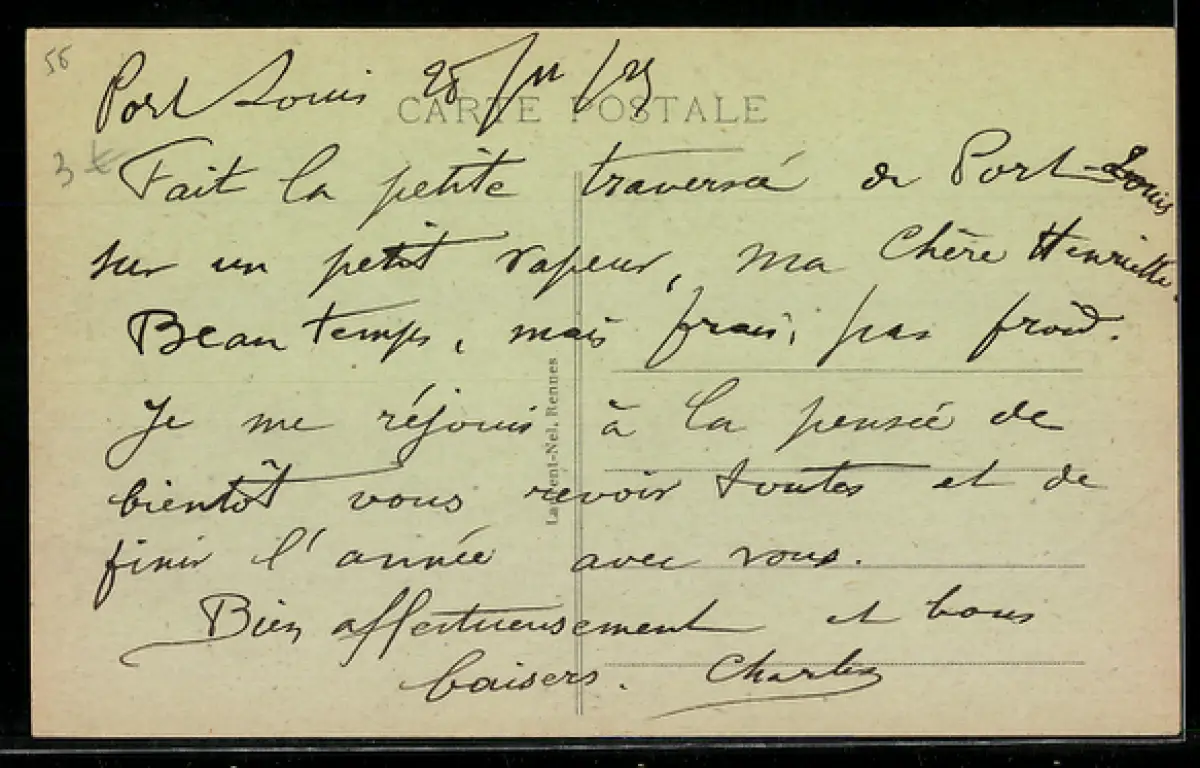 56
Port Louis 28/11/25
CARTE POSTALE
3 €
Fait la petite traversée de Port-Louis
sur un petit vapeur, ma Chère Henriette.
Beau temps, mais frais, pas froid.
Je me réjouis à la pensée de
bientôt vous revoir toutes et de
finir l'année avec vous.
Bien affectueusement et bons
baisers. Charles
Laurent-Nel, Rennes